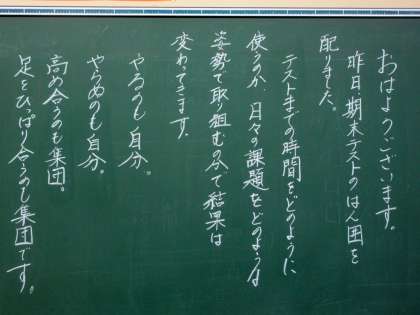 おはようございます。
昨日期末テストのはん囲を
配りました。
テストまでの時間をどのように
使うのか、日々の課題をどのような
姿勢で取組むの分で結果は
変わってきます。
やるのも自分。
やらぬのも自分。
高め合うのも集団。
足をひっぱり合うのも集団です。